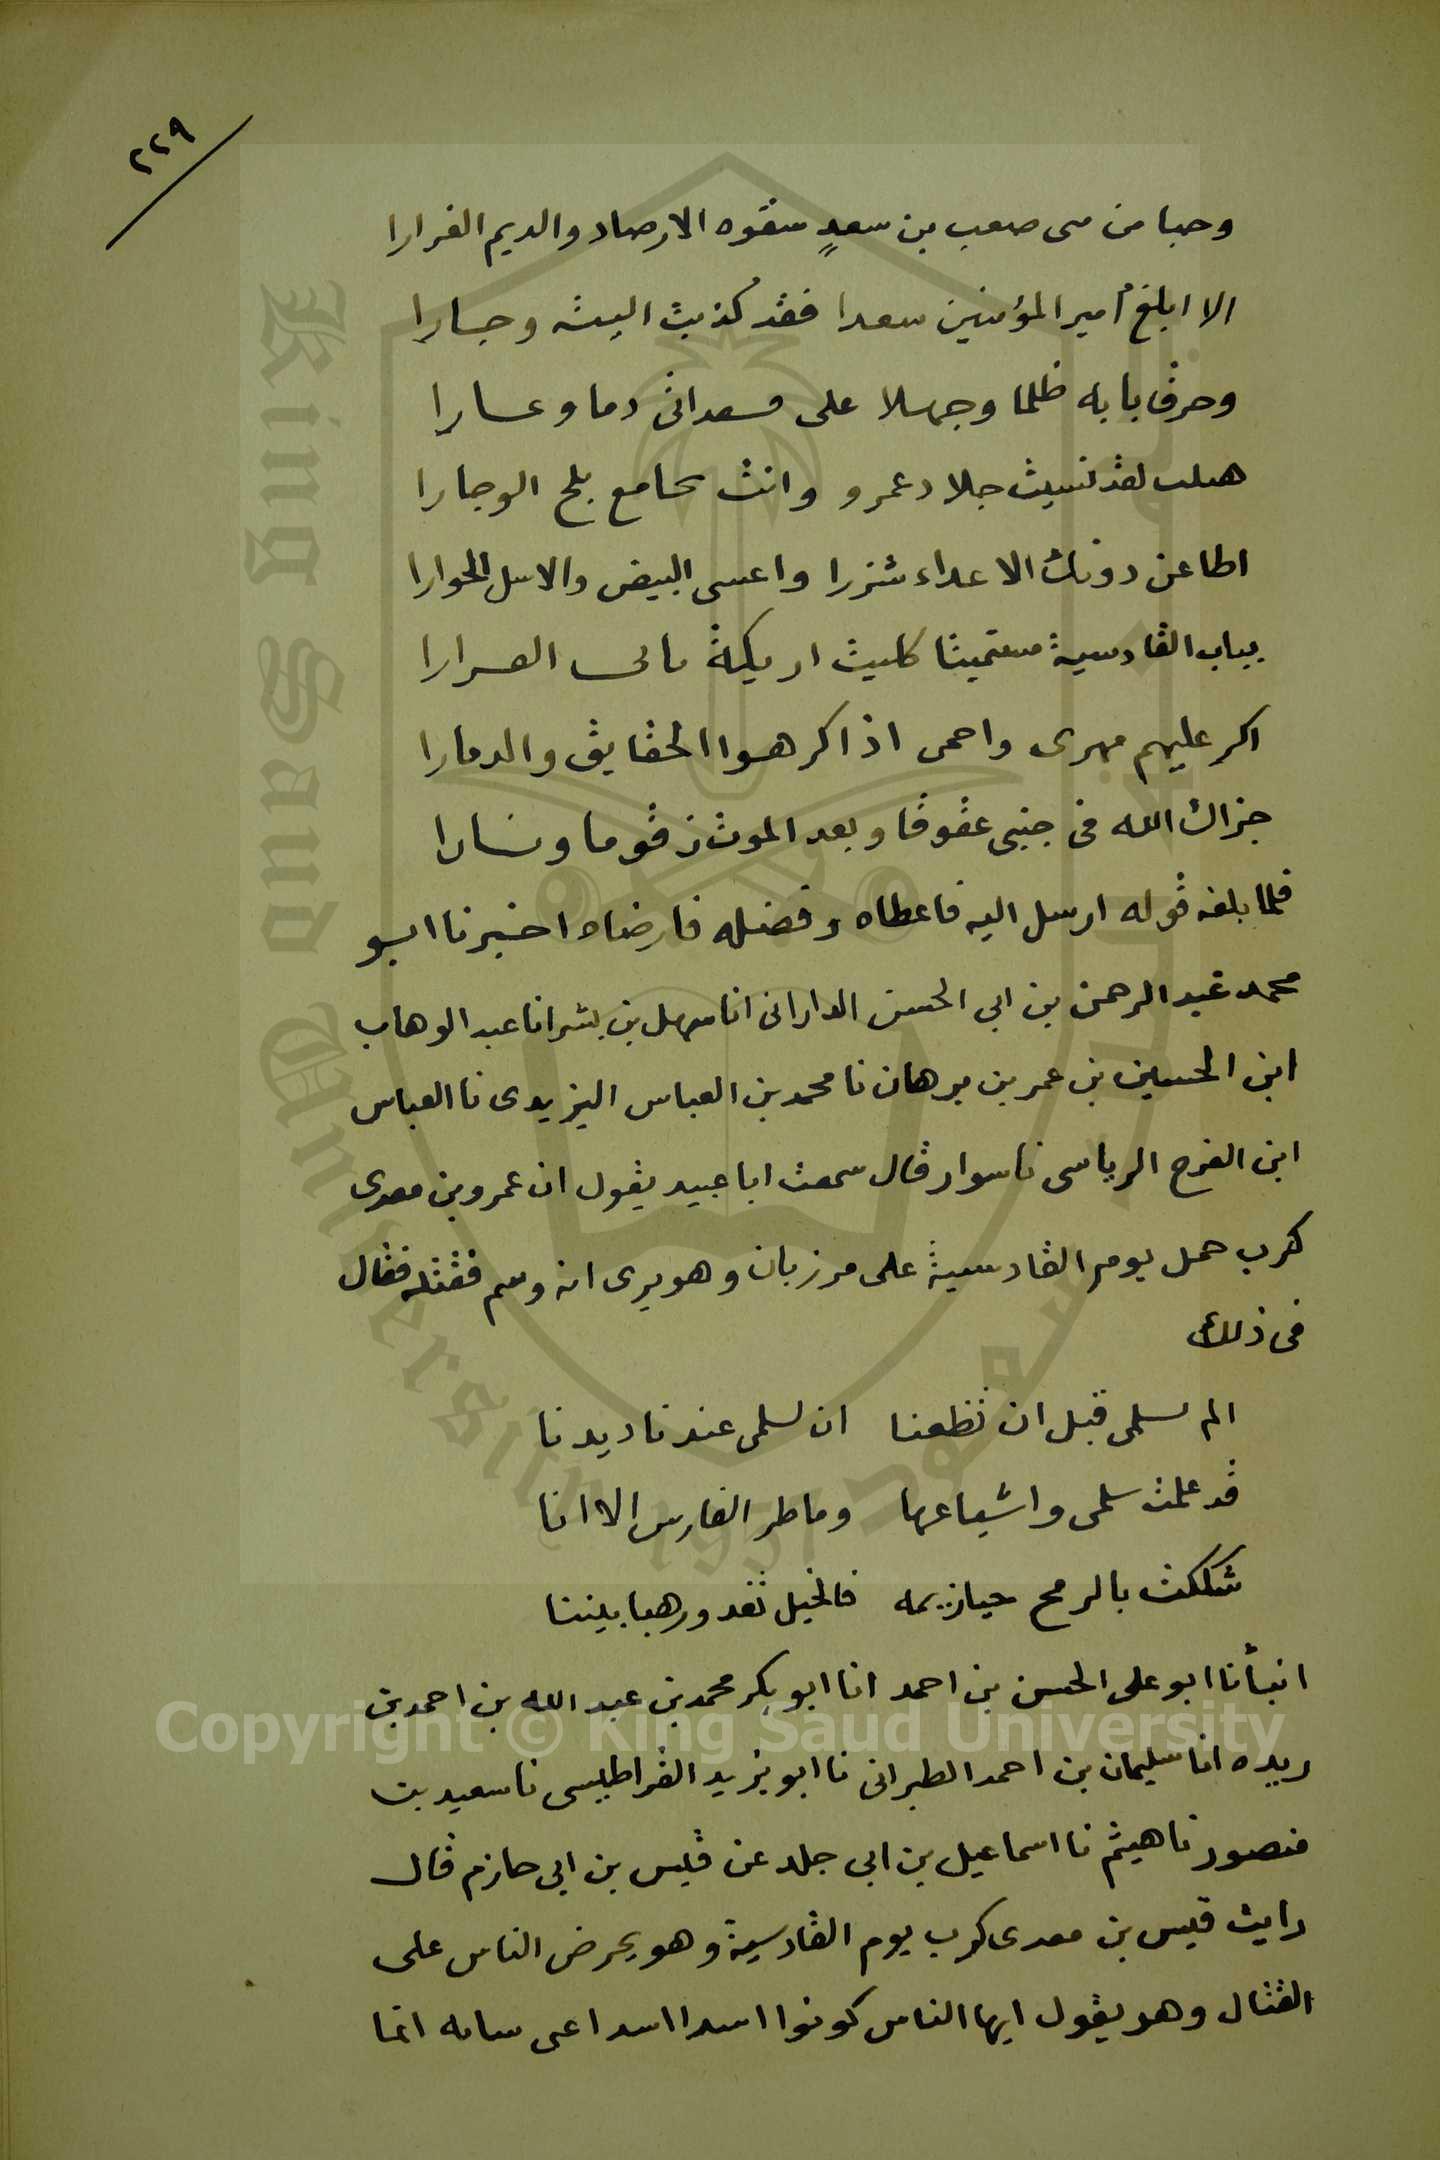 ٢٢٩
وحبا من سى صعب بن سعدٍ سقوه الارصاد والديم الغرارا
الا ابلغ أمير المؤمنين سعدا فقد كذبت اليته وجارا
وحرق بابه ظلما وجهلا على سعدانى دما وعارا
هبلت لقد نسيت جلاد عمرو وانت كامع يلح الوجارا
اطاعن دونك الاعداء شزرا واعسى البيض والاسل الحوارا
بباب القادسية مستميتا كليث اريكة يابى العرارا
اكر عليهم مهرى واحمى اذا كرهوا الحقايق والدمارا
جزاك الله فى جنبى عقوقا وبعد الموت زقوما ونارا
فلما بلغه قوله ارسل اليه فاعطاه وفضله فارضاه اخبرنا ابو
محمد عبد الرحمن بن ابي الحسن الدارانى انا سهل بن بشر انا عبد الوهاب
ابن الحسين بن عمر بن برهان نا محمد بن العباس اليزيدى نا العباس
ابن الفرج الرياسى نا سوار قال سمعت ابا عبيد يقول ان عمرو بن معدى
كرب حمل يوم القادسية على مرزبان وهو يرى انه وسم فقتله فقال
فى ذلك
الم لسلمى قبل ان تظعنا ان لسلمى عندنا ديدنا
قد علمت سلمى واشياعها وماطر الفارس الا انا
شككت بالرمح حيازيمه فالخيل تغدو رهبا بيننا
انبأنا ابو على الحسن بن احمد انا ابو بكر محمد بن عبد الله بن احمد بن
ريده انا سليمان بن احمد الطبرانى نا ابو يزيد القراطيسى نا سعيد بن
منصور نا هيثم نا اسماعيل بن ابى جلد عن قيس بن ابى حازم قال
رايت قيس بن معدى كرب يوم القادسية وهو يحرض الناس على
القتال وهو يقول ايها الناس كونوا اسدا اسدا عى سانه انما
Copyright © King Saud University
King Saud University
1957